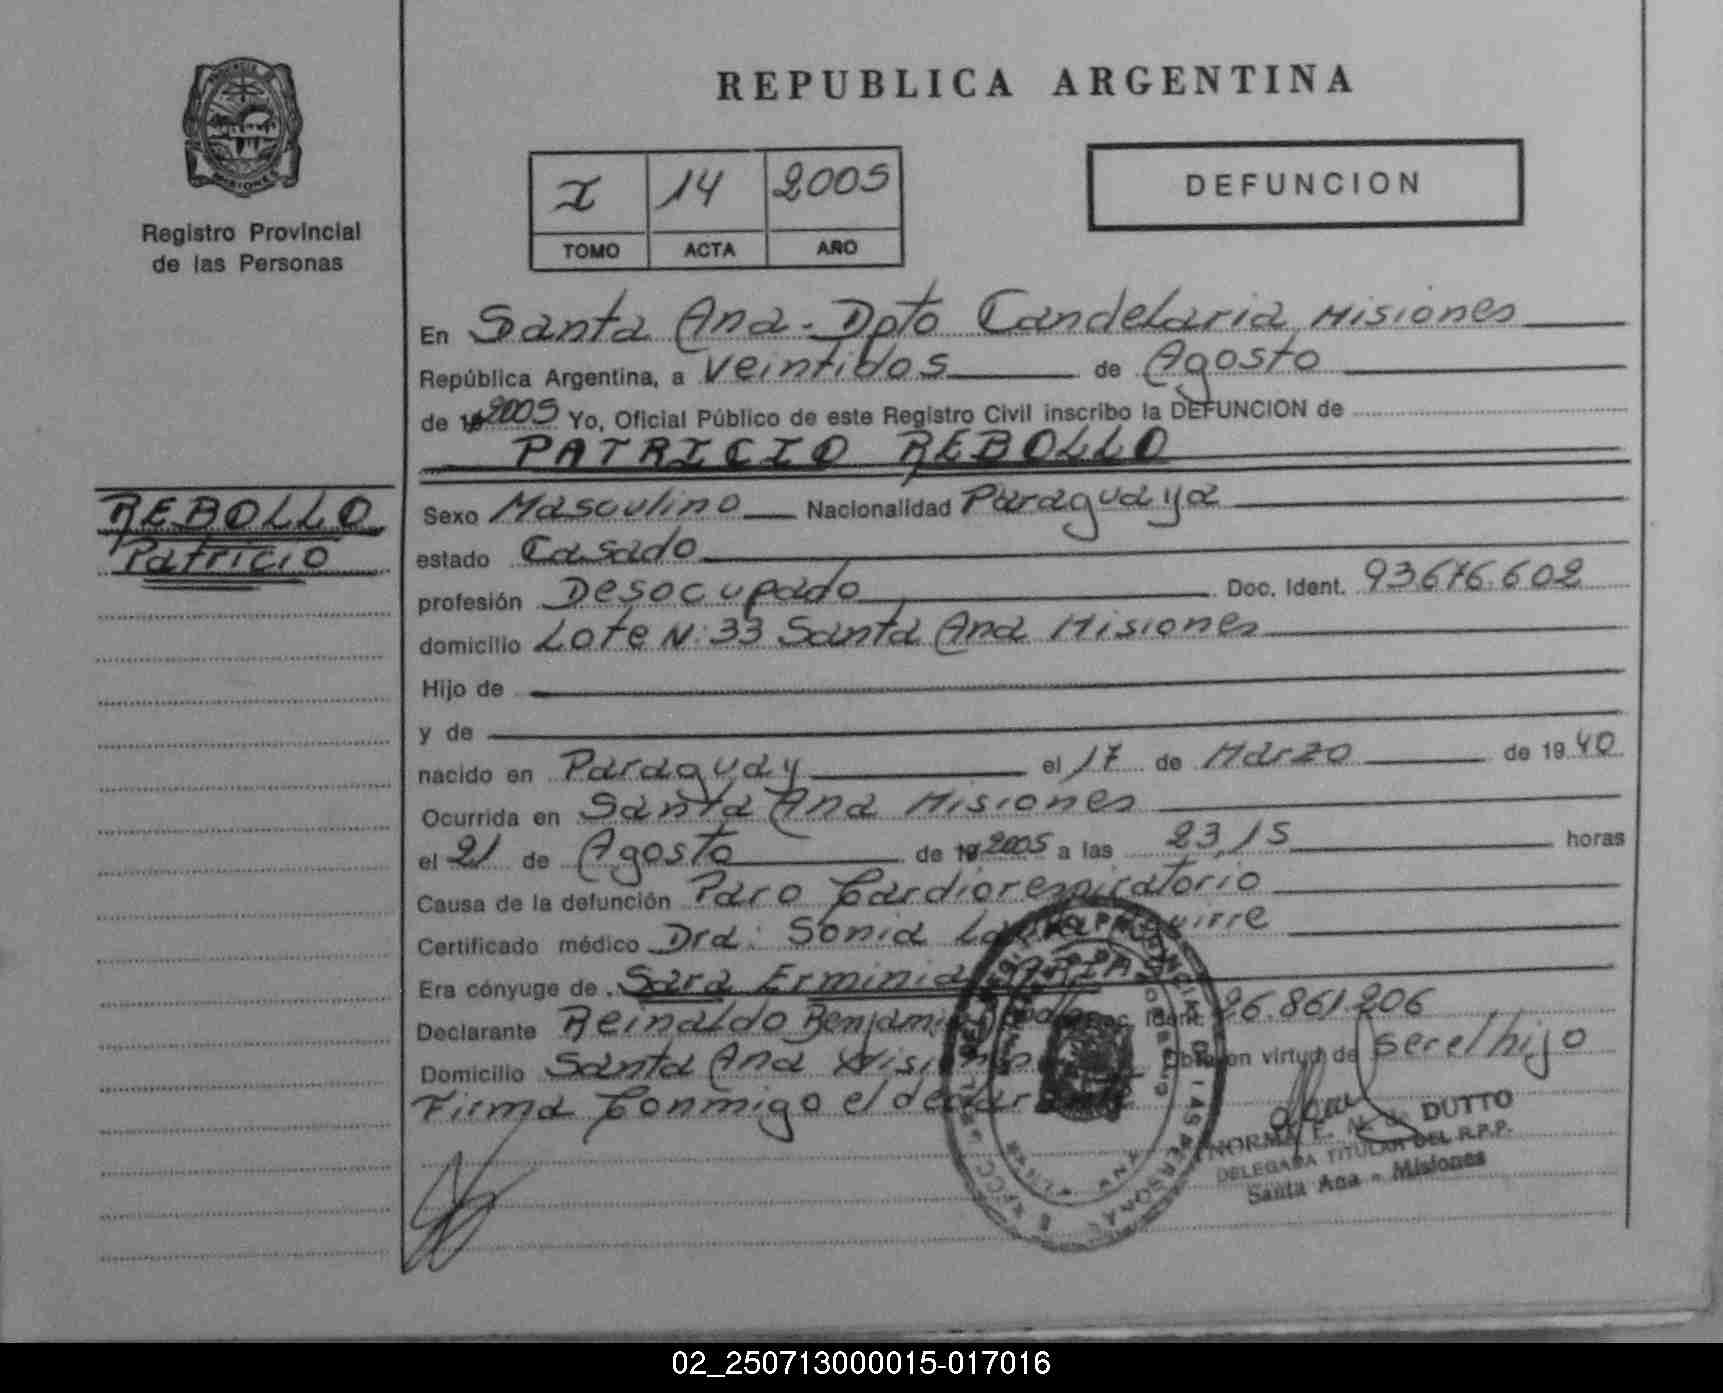 REPUBLICA ARGENTINA
PROVINCIA DE
MISIONES
Registro Provincial
de las Personas
I 14 2005
TOMO ACTA AÑO
DEFUNCION
En Santa Ana - Dpto Candelaria Misiones
República Argentina, a veintidos de Agosto
de 19 2005 Yo, Oficial Público de este Registro Civil inscribo la DEFUNCION de
PATRICIO REBOLLO
REBOLLO
Patricio
Sexo Masculino Nacionalidad Paraguaya
estado Casado
profesión Desocupado Doc. Ident. 93.676.602
domicilio Lote N: 33 Santa Ana Misiones
Hijo de
y de
nacido en Paraguay el 17 de Marzo de 19 40
Ocurrida en Santa Ana Misiones
el 21 de Agosto de 19 2005 a las 23,15 horas
Causa de la defunción Paro Cardiorespiratorio
Certificado médico Dra: Sonia
Era cónyuge de Sara Erminia
Declarante Reinaldo Benjamin Ident. 26.861.206
Domicilio Santa Ana Misiones Obra en virtud de ser el hijo
Firma Conmigo el
NORMA DUTTO
DELEGADA TITULAR DEL R.P.P.
Santa Ana - Misiones
02_250713000015-017016